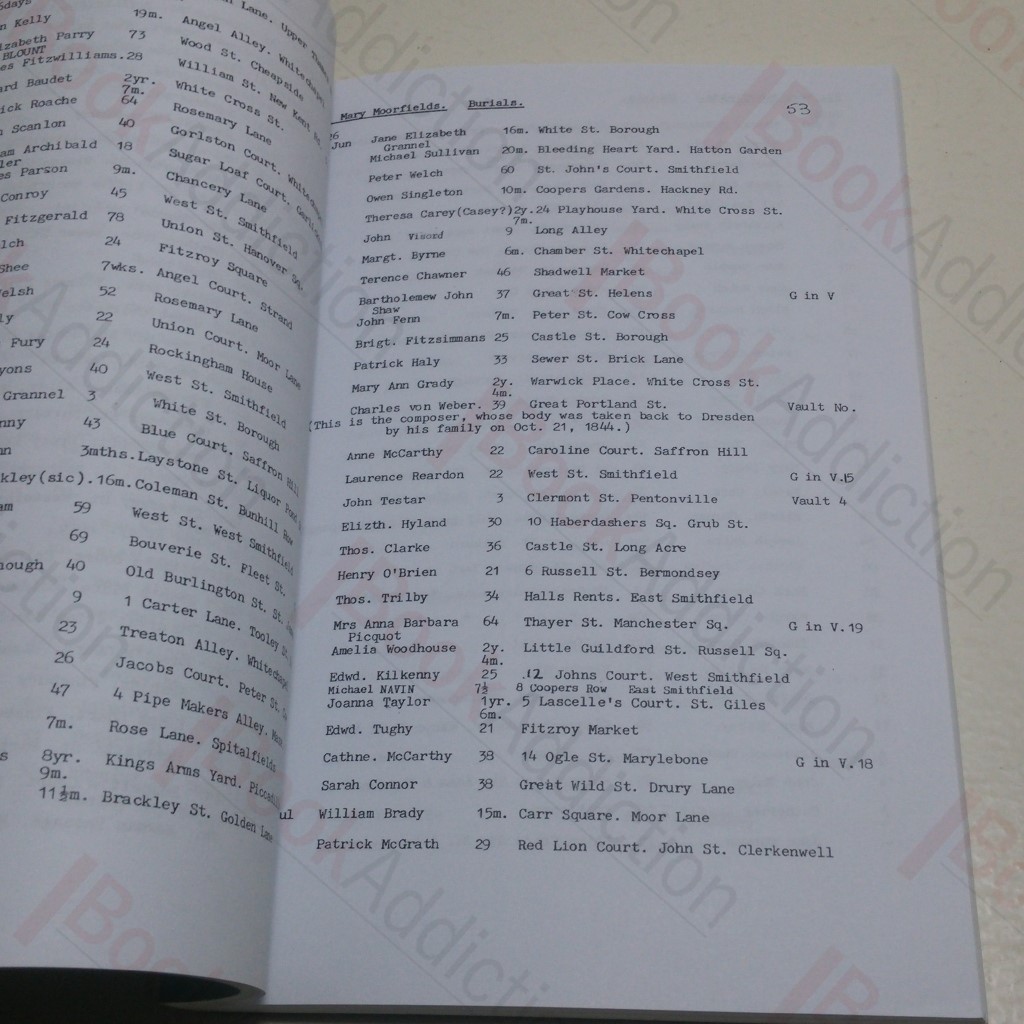 5days
Lane. Upper
n Kelly 19m. Angel Alley. Whitechapel
izabeth Parry 73 Wood St. Cheapside
BLOUNT
es Fitzwilliams. 28 William St. New Kent
ard Baudet 2yr. White Cross St.
7m.
ick Roache 64 Rosemary Lane
n Scanlon 40 Gorlston Court.
am Archibald 18 Sugar Loaf Court.
ler
es Parson 9m. Chancery Lane
Conroy 45 West St. Smithfield
Fitzgerald 78 Union St. Hanover Sq.
lch 24 Fitzroy Square
Shee 7wks. Angel Court. Strand
elsh 52 Rosemary Lane
ly 22 Union Court. Moor Lane
Fury 24 Rockingham House
yons 40 West St. Smithfield
Grannel 3 White St. Borough
nny 43 Blue Court. Saffron Hill
nn 3mths. Laystone St. Liquor Pond
kley(sic). 16m. Coleman St. Bunhill Row
am 59 West St. West Smithfield
69 Bouverie St. Fleet St.
nough 40 Old Burlington St.
9 1 Carter Lane. Tooley St.
23 Treaton Alley. Whitechapel
26 Jacobs Court. Peter St.
47 4 Pipe Makers Alley.
7m. Rose Lane. Spitalfields
s 8yr. Kings Arms Yard.
9m.
11½m. Brackley St. Golden Lane
Mary Moorfields. Burials. 53
26 Jane Elizabeth 16m. White St. Borough
Jun Grannel
Michael Sullivan 20m. Bleeding Heart Yard. Hatton Garden
Peter Welch 60 St. John's Court. Smithfield
Owen Singleton 10m. Coopers Gardens. Hackney Rd.
Theresa Carey(Casey?) 2y. 24 Playhouse Yard. White Cross St.
7m.
John Visord 9 Long Alley
Margt. Byrne 6m. Chamber St. Whitechapel
Terence Chawner 46 Shadwell Market
Bartholemew John 37 Great St. Helens G in V
Shaw
John Fenn 7m. Peter St. Cow Cross
Brigt. Fitzsimmans 25 Castle St. Borough
Patrick Haly 33 Sewer St. Brick Lane
Mary Ann Grady 2y. Warwick Place. White Cross St.
4m.
Charles von Weber. 39 Great Portland St. Vault No.
(This is the composer, whose body was taken back to Dresden
by his family on Oct. 21, 1844.)
Anne McCarthy 22 Caroline Court. Saffron Hill
Laurence Reardon 22 West St. Smithfield G in V.15
John Testar 3 Clermont St. Pentonville Vault 4
Elizth. Hyland 30 10 Haberdashers Sq. Grub St.
Thos. Clarke 36 Castle St. Long Acre
Henry O'Brien 21 6 Russell St. Bermondsey
Thos. Trilby 34 Halls Rents. East Smithfield
Mrs Anna Barbara 64 Thayer St. Manchester Sq. G in V.19
Picquot
Amelia Woodhouse 2y. Little Guildford St. Russell Sq.
4m.
Edwd. Kilkenny 25 .12 Johns Court. West Smithfield
Michael NAVIN 7½ 8 Coopers Row East Smithfield
Joanna Taylor 1yr. 5 Lascelle's Court. St. Giles
6m.
Edwd. Tughy 21 Fitzroy Market
Cathne. McCarthy 38 14 Ogle St. Marylebone G in V.18
Sarah Connor 38 Great Wild St. Drury Lane
ul William Brady 15m. Carr Square. Moor Lane
Patrick McGrath 29 Red Lion Court. John St. Clerkenwell
BookAddiction